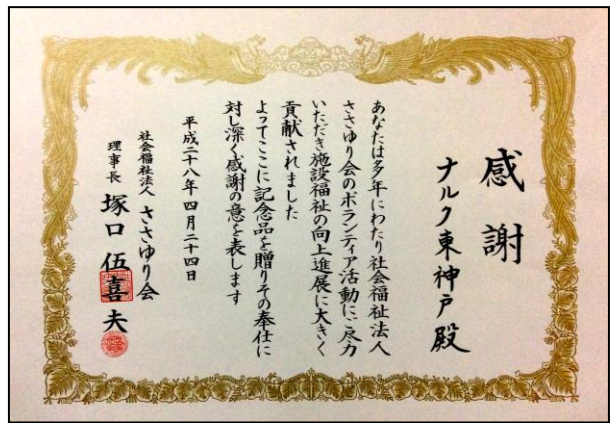 感謝
ナルク東神戸殿
あなたは多年にわたり社会福祉法人
ささゆり会のボランティア活動にご尽力
いただき施設福祉の向上進展に大きく
貢献されました
よってここに記念品を贈りその奉仕に
対し深く感謝の意を表します
平成二十八年四月二十四日
社会福祉法人ささゆり会
理事長 塚口伍喜夫